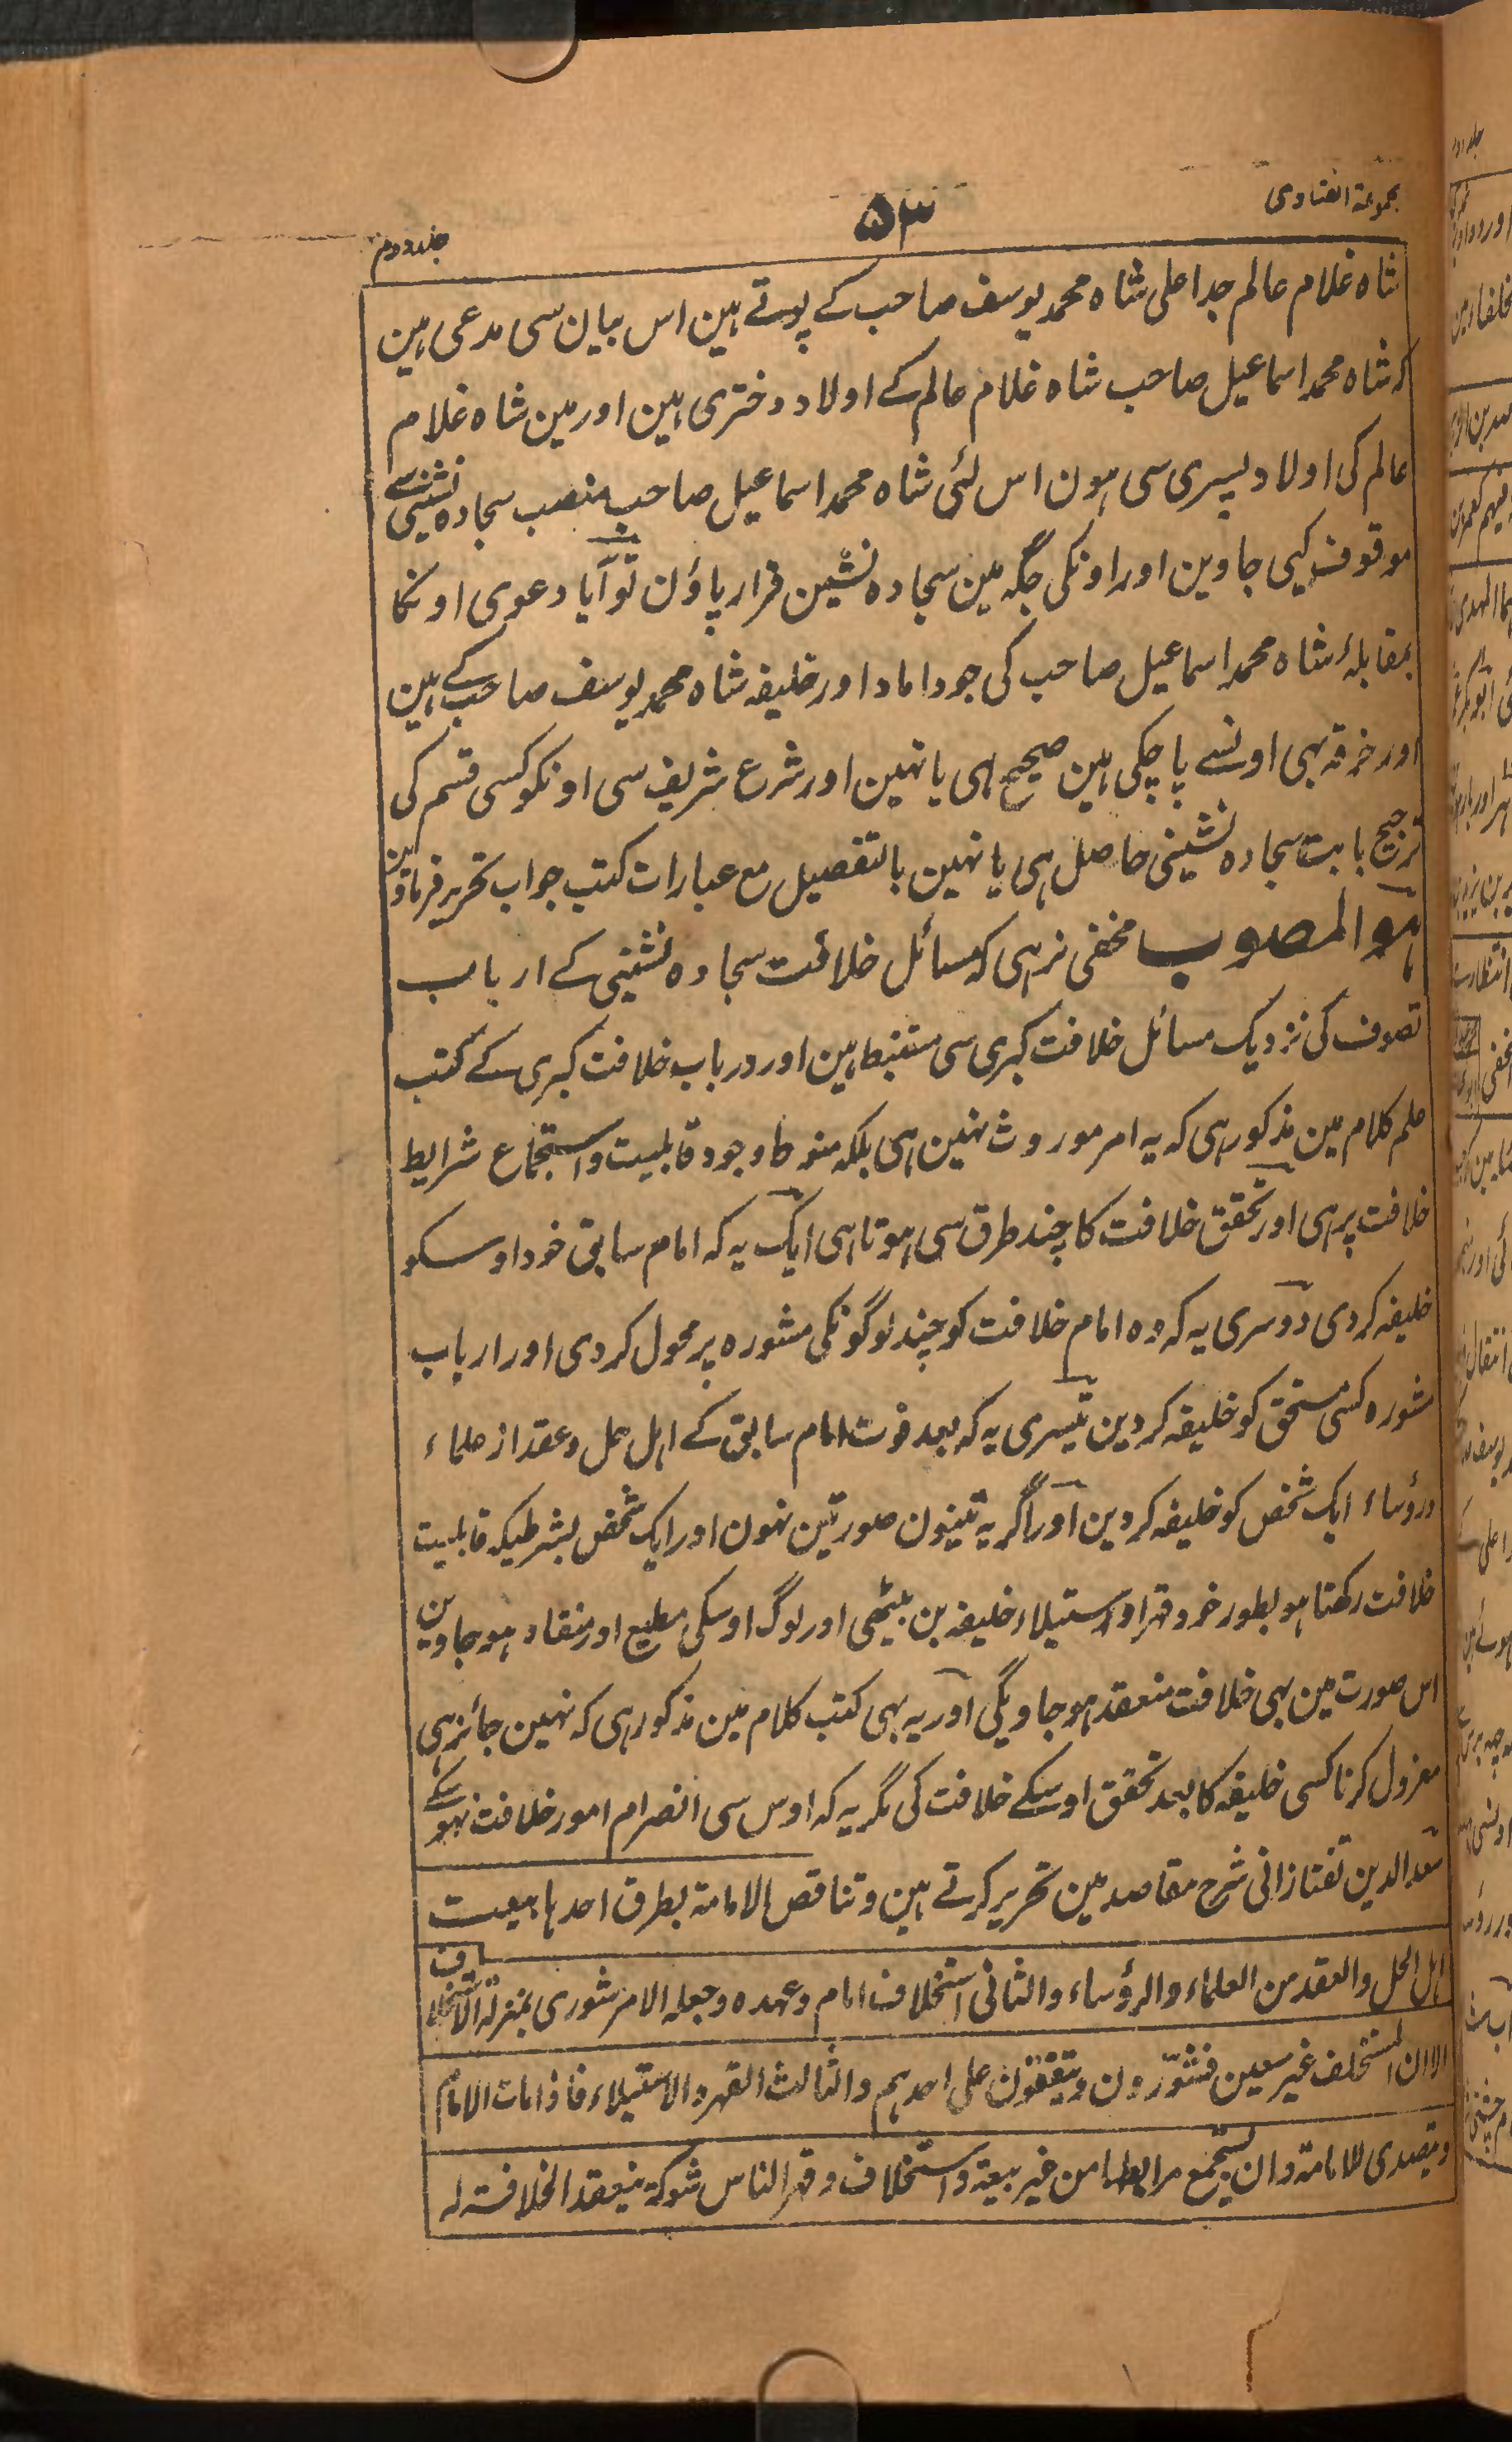 مجموعۃ الفتاوی
۵۳
جلد دوم
شاہ غلام عالم جد اعلی شاہ محمد یوسف صاحب کے پوتے ہین اس بیان سی مدعی ہین
کہ شاہ محمد اسماعیل صاحب شاہ غلام عالم کے اولاد دختری ہین اور مین شاہ غلام
عالم کی اولاد پسری سی ہون اس لئی شاہ محمد اسماعیل صاحب منصب سجادہ نشینی سے
موقوف کیی جاوین اور اونکی جگہ مین سجادہ نشین قرار پاؤن تو آیا دعوی اونکا
بمقابلۂ شاہ محمد اسماعیل صاحب کی جو داماد اور خلیفہ شاہ محمد یوسف صاحب کے ہین
اور خرقہ بہی اونسے پا چکی ہین صحیح ہی یا نہین اور شرع شریف سی اونکو کسی قسم کی
ترجیح بابت سجادہ نشینی حاصل ہی یا نہین بالتفصیل مع عبارات کتب جواب تحریر فرماوین
ہو المصوب مخفی نرہی کہ مسائل خلافت سجادہ نشینی کے ارباب
تصوف کی نزدیک مسائل خلافت کبری سی مستنبط ہین اور درباب خلافت کبری کے کتب
علم کلام مین مذکور ہی کہ یہ امر موروث نہین ہی بلکہ منوط وجود قابلیت واستجماع شرایط
خلافت پر ہی اور تحقق خلافت کا چند طرق سی ہوتا ہی ایک یہ کہ امام سابق خود اوسکو
خلیفہ کردی دوسری یہ کہ وہ امام خلافت کو چند لوگونکی مشورہ پر محول کردی اور ارباب
مشورہ کسی مستحق کو خلیفہ کردین تیسری یہ کہ بعد فوت امام سابق کے اہل حل وعقد از علماء
ورؤساء ایک شخص کو خلیفہ کردین اور اگر یہ تینون صورتین نہون اور ایک شخص بشرطیکہ قابلیت
خلافت رکھتا ہو بطور خود قہرا واستیلاء خلیفہ بن بیٹھی اور لوگ اوسکی مطیع اور منقاد ہو جاوین
اس صورت مین بہی خلافت منعقد ہو جاویگی اور یہ بہی کتب کلام مین مذکور ہی کہ نہین جائز ہی
معزول کرنا کسی خلیفہ کا بعد تحقق اوسکے خلافت کی مگر یہ کہ اوس سی انصرام امور خلافت نہوسکے
سعد الدین تفتازانی شرح مقاصد مین تحریر کرتے ہین وتناقص الامامۃ بطرق احدہا بیعت
اہل الحل والعقد من العلماء والرؤساء والثانی استخلاف امام وعہدہ وجعلہ الامر شوری بمنزلۃ الاستخلاف
الا ان المستخلف غیر معین فیتشوّرون ویتفقون علی احدہم والثالث القہر والاستیلاء فاذا مات الامام
ویتصدی للامامۃ وان یستجمع من غیر بیعۃ واستخلاف وقہر الناس شوکۃ ینعقد الخلافۃ لہ